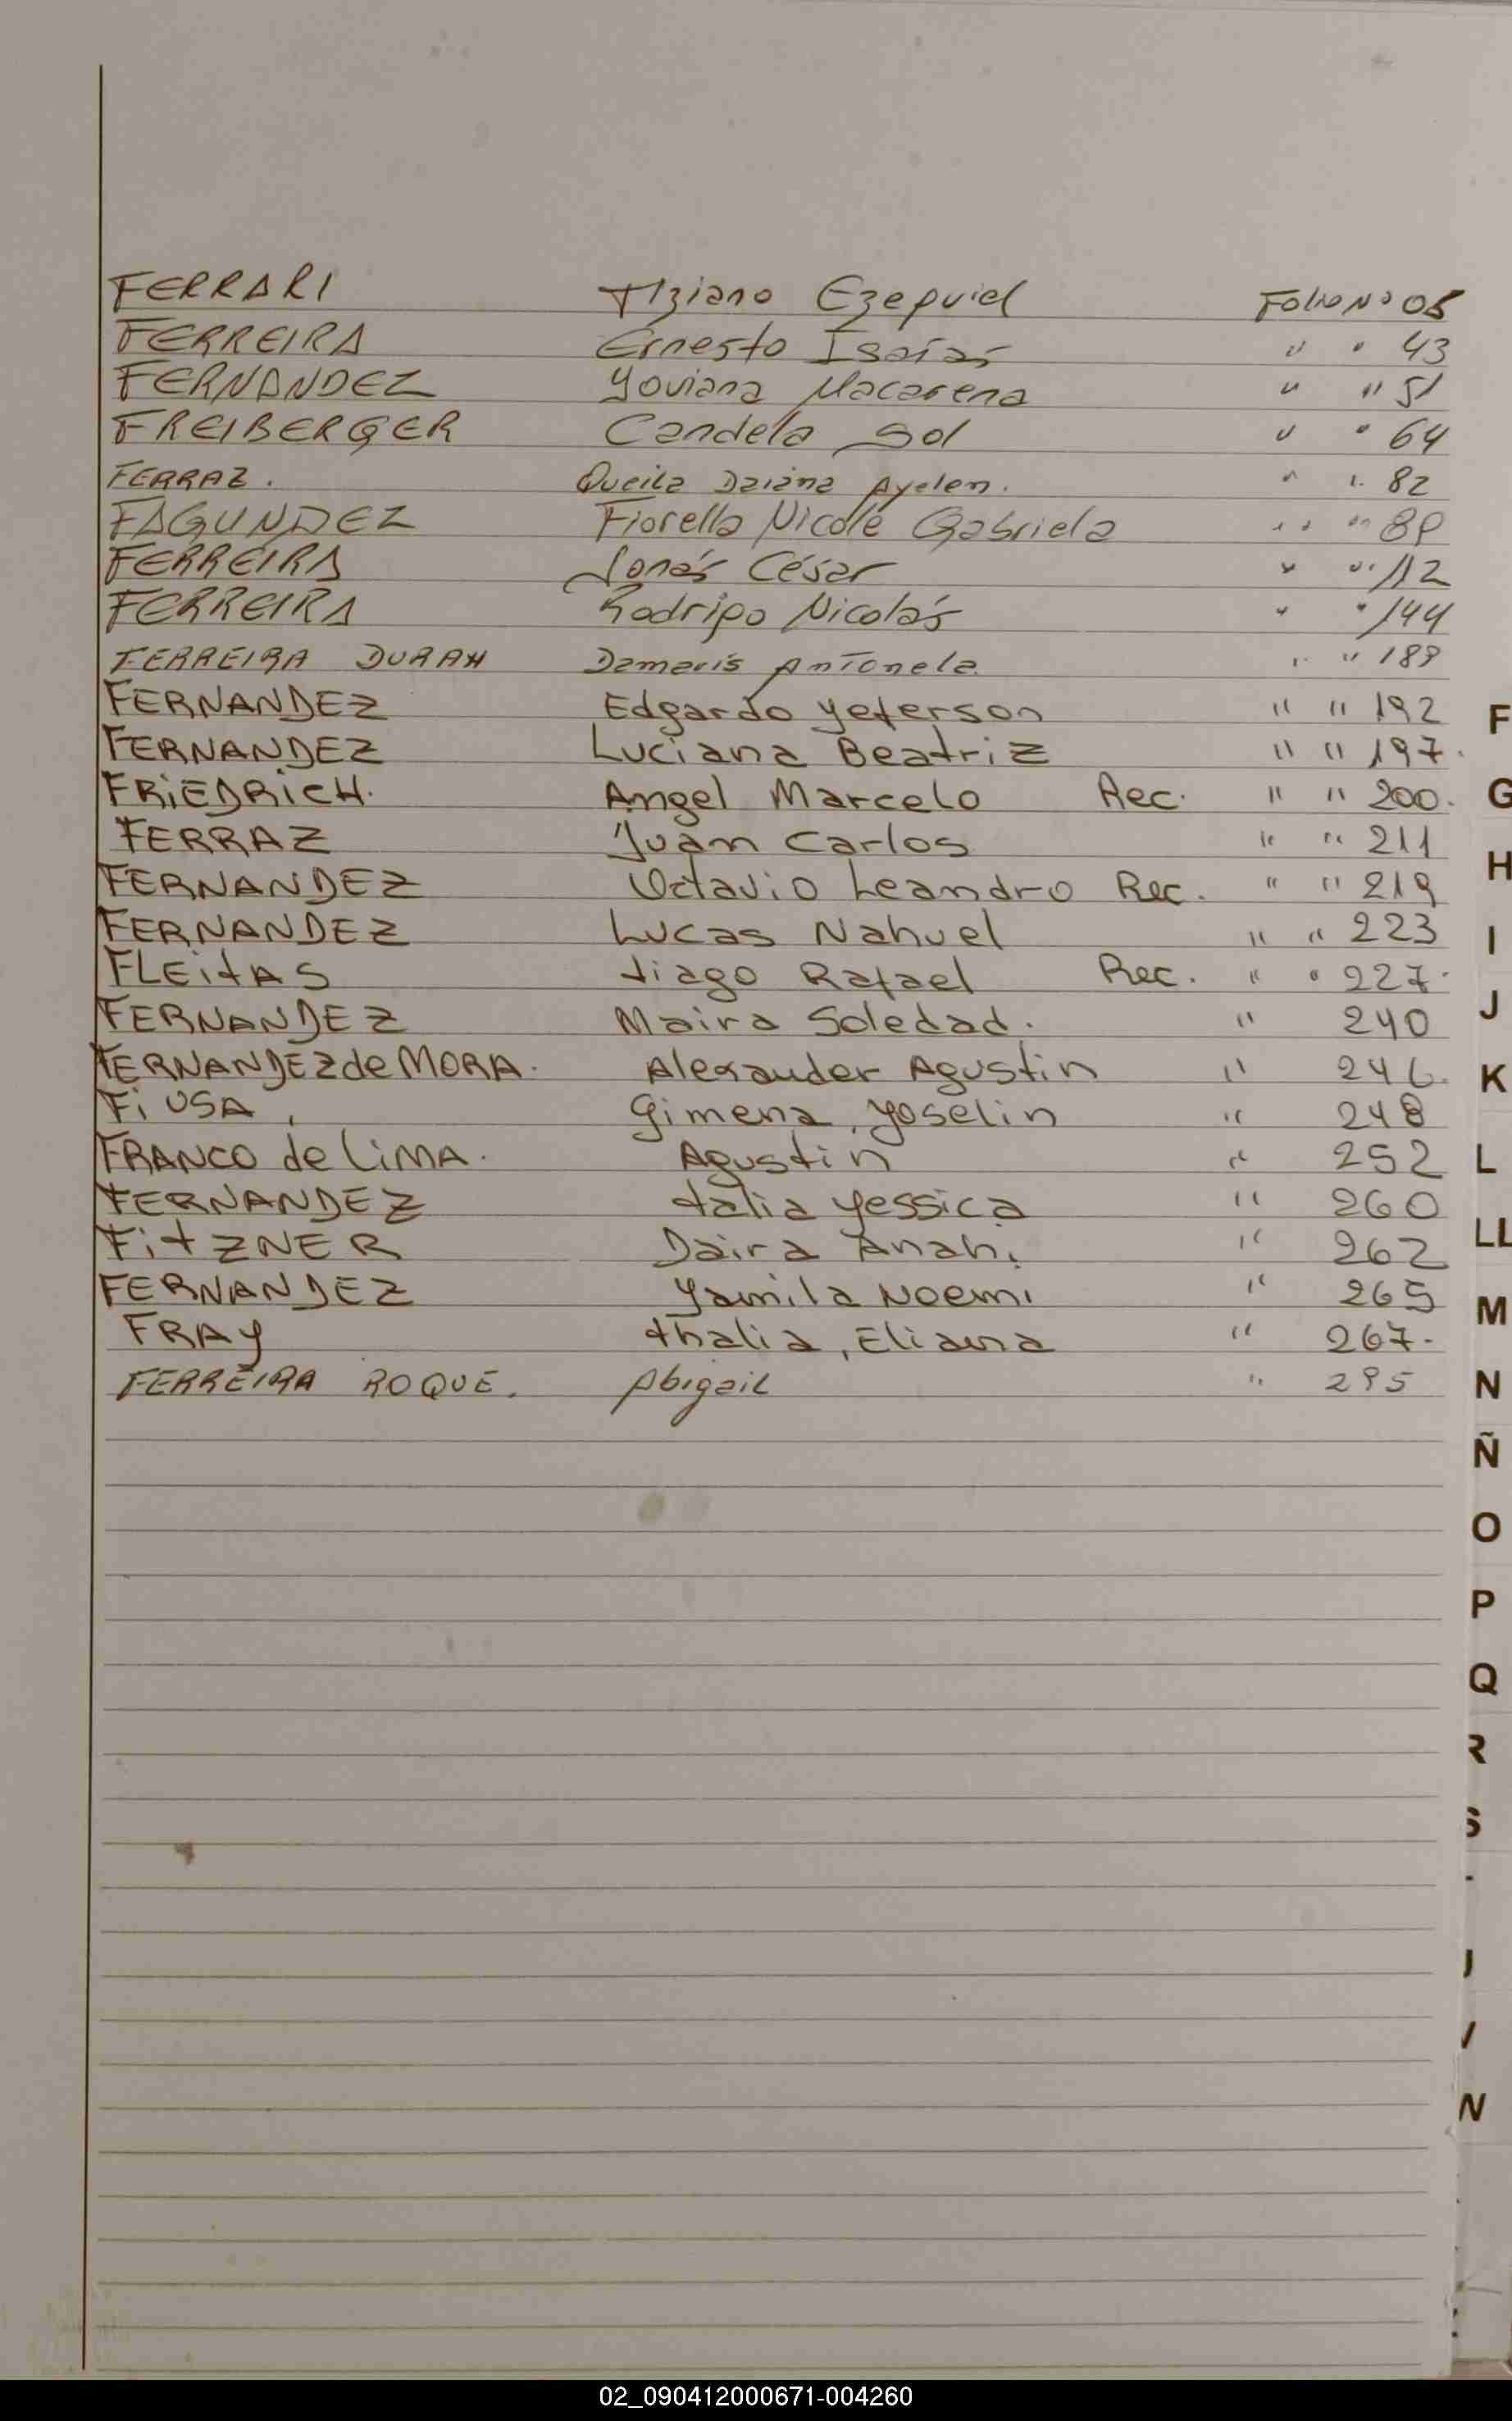 FERRARI Tiziano Ezequiel Folio Nº 05
FERREIRA Ernesto Isaías " " 43
FERNANDEZ Yoviana Macarena " " 51
FREIBERGER Candela Sol " " 64
FERRAZ. Queila Daiana Ayelen. " " 82
FAGUNDEZ Fiorella Nicole Gabriela " " 89
FERREIRA Jonás César " " 112
FERREIRA Rodrigo Nicolás " " 144
FERREIRA DURAN Damaris Antonela. " " 189
FERNANDEZ Edgardo Yeferson " " 192
FERNANDEZ Luciana Beatriz " " 197.
FRiEDRiCH. Angel Marcelo Rec. " " 200.
FERRAZ Juan Carlos " " 211
FERNANDEZ Octavio Leandro Rec. " " 219
FERNANDEZ Lucas Nahuel " " 223
FLEitAS tiago Rafael Rec. " " 227.
FERNANDEZ Maira Soledad. " 240
FERNANDEZ de MORA. Alexander Agustin " 246.
Fi USA, Gimena, Yoselin " 248
FRANCO de LiMA. Agustin " 252
FERNANDEZ talia Yessica " 260
FitZNER Daira Anahi " 262
FERNANDEZ Yamila Noemi " 265
FRAY thalia, Eliana " 267.
FERREIRA ROQUE. Abigail " 295
F
G
H
I
J
K
L
LL
M
N
Ñ
O
P
Q
R
S
J
V
N
02_090412000671-004260